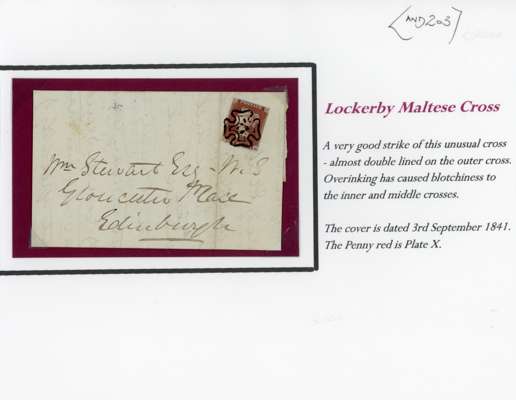 <AND203]
Lockerby Maltese Cross
A very good strike of this unusual cross
- almost double lined on the outer cross.
Overinking has caused blotchiness to
the inner and middle crosses.
The cover is dated 3rd September 1841.
The Penny red is Plate X.
Wm Stewart Esq W.S
Gloucester Place
Edinburgh